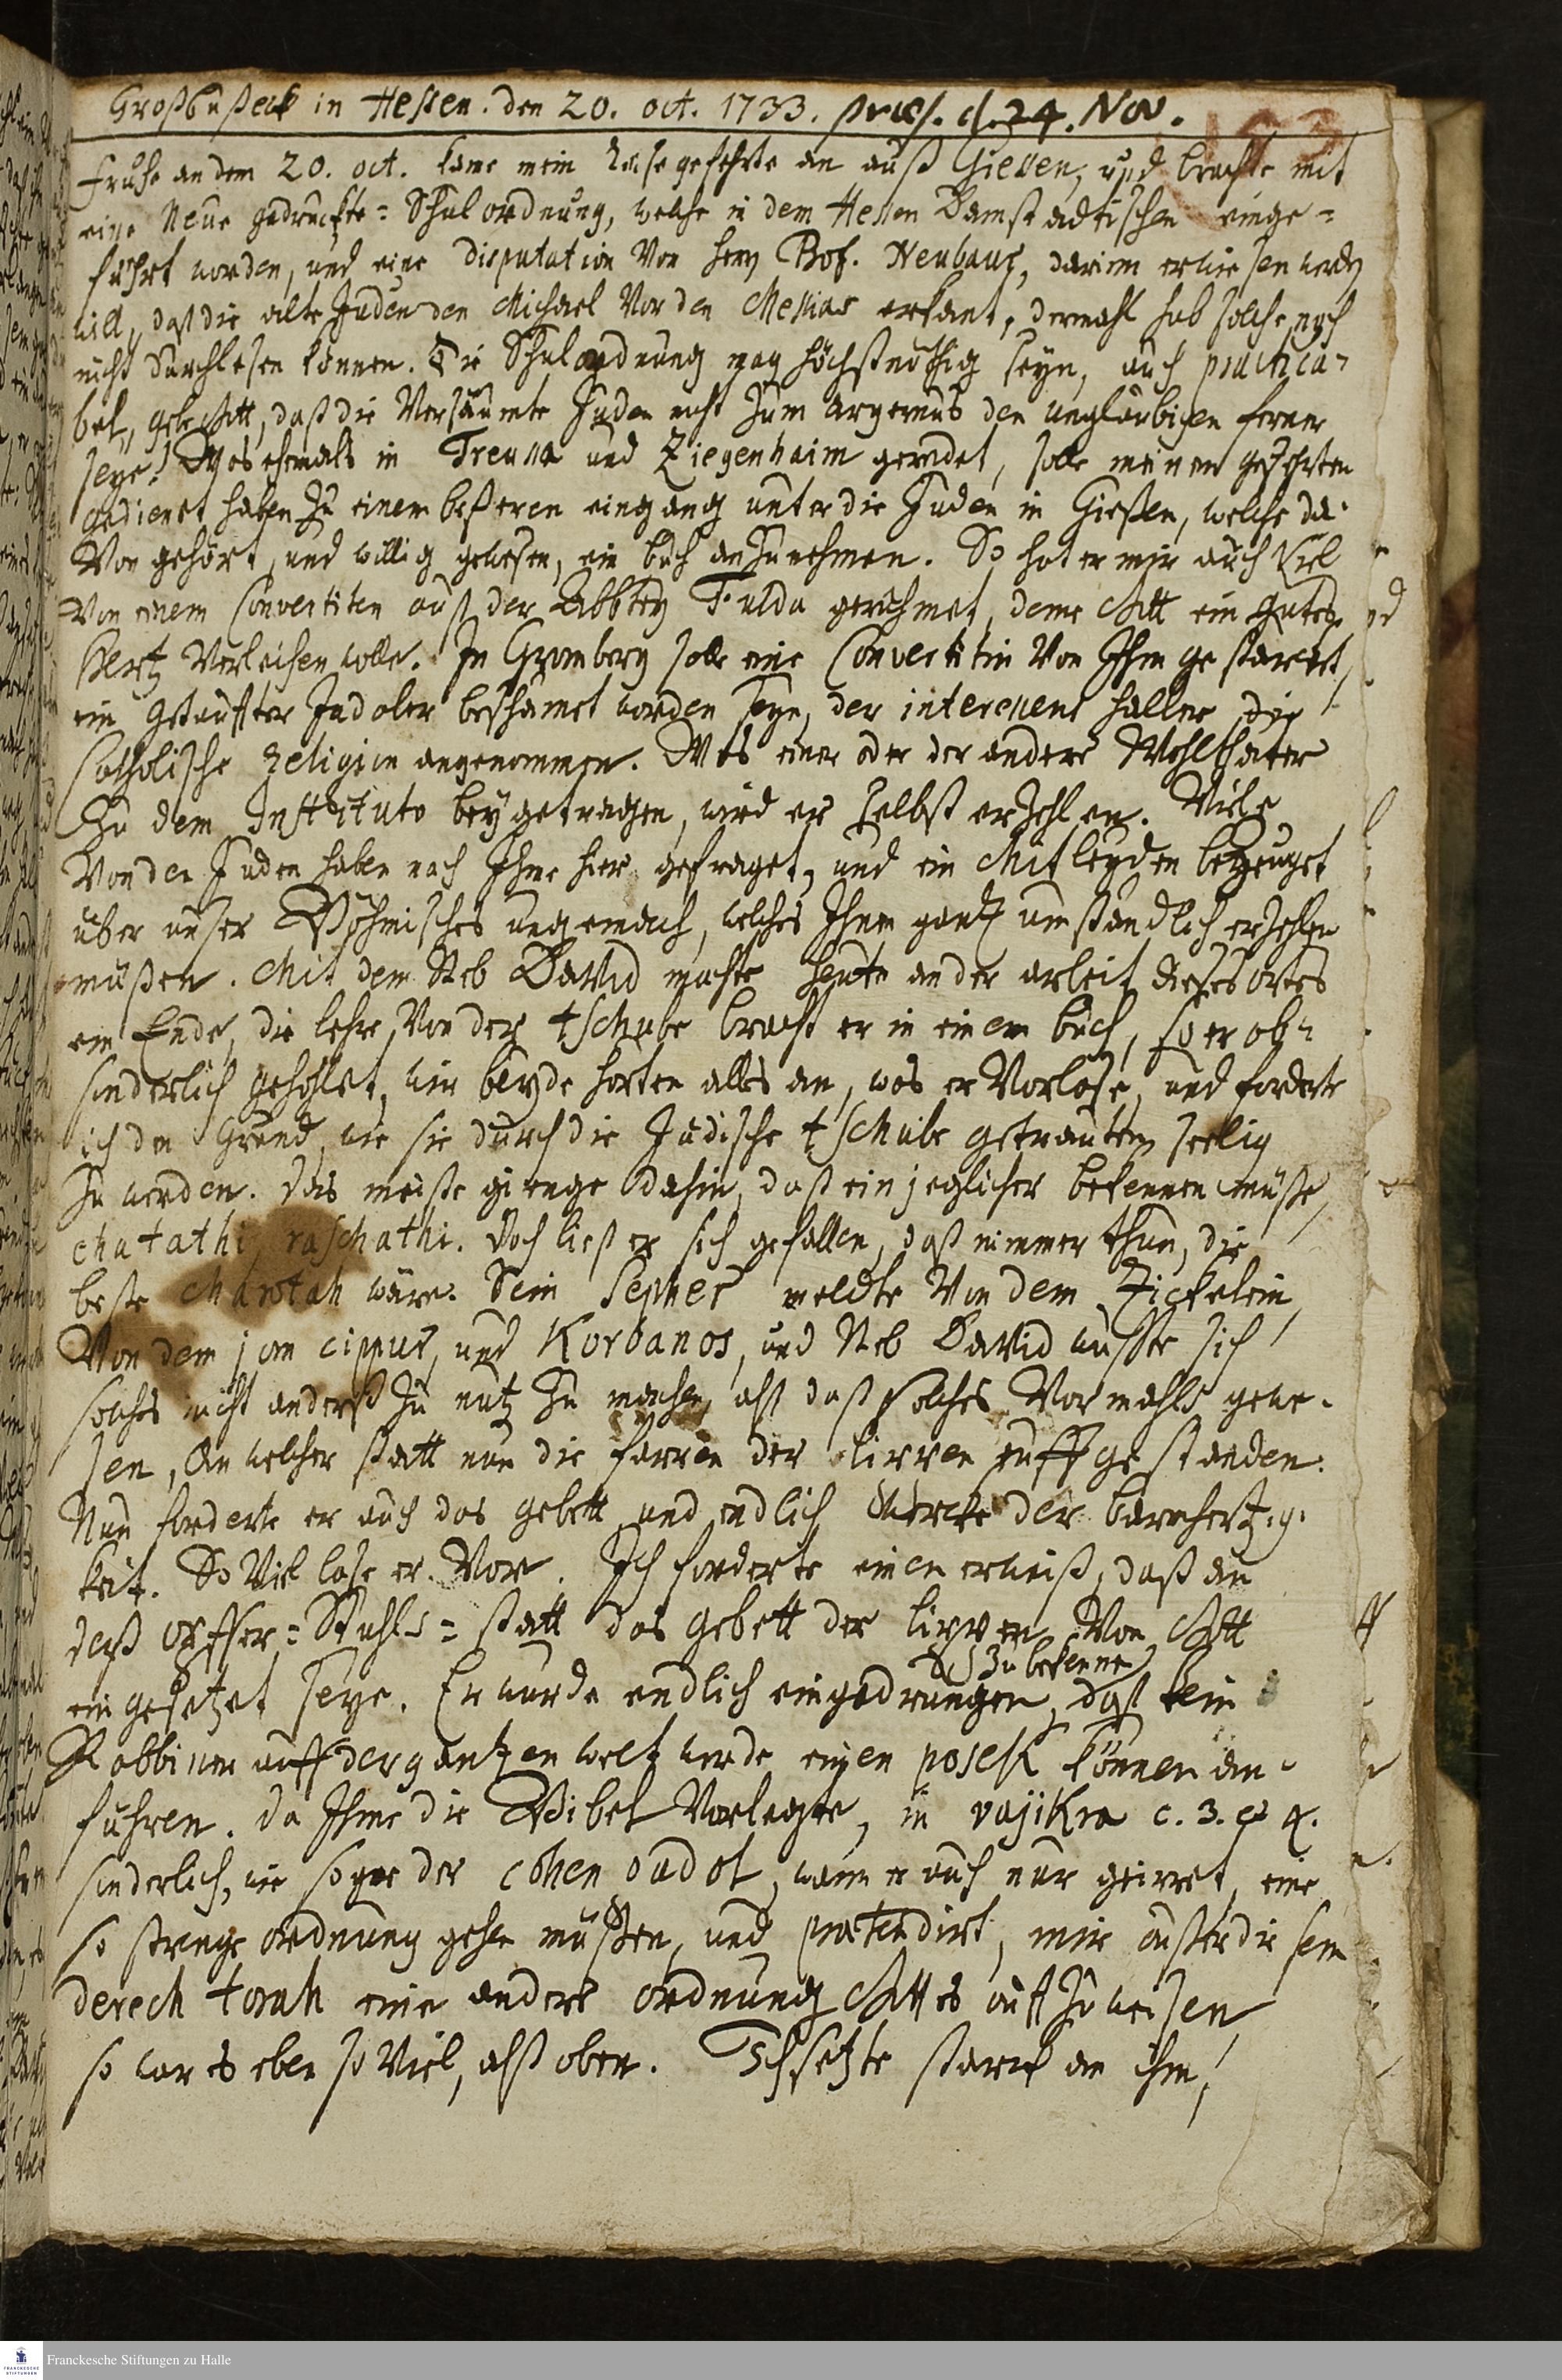 Großbußeck in Hessen. den 20. oct. 1733. præs. d. 24. Nov.
Fruhe an dem 20. oct. kame mein Reisegefehrte an auß Giessen, und brachte mit
eine Neue gedruckte-Schulordnung, welche in dem Hessen Damstadtischen einge=
fuhrt worden, und eine disputation Von herrn Prof. Neubaur, darinn erwiesen werden
will, daß die alte Juden den Michael Vor den Messias erkant, dermahl hab solche noch
nicht durchlesen können. Die Schulordnung mag höchstnöthig seyn, auch practica=
bel, gebe Gott, daß die Versäumte Juden nicht zum argernus den unglaubigen ferner
seye! Was ehmals in Treussa und Ziegenhaim geredet, solle meinem gefehrten
gedienet haben zu einem beßeren eingang unter die Juden in Gießen, welche da=
Von gehört, und willig gewesen, ein buch anzunehmen. So hat er mir auch Viel
Von einem Convertiten auß der Abbtey Fulda geruhmet, deme Gott ein gutes
Hertz Verleihen wolle. In Gromberg solle eine Convertitin Von Ihm gestarcket,
ein getauffter Jud aber beschamet worden seyn, der interessens halber die
Catholische Religion angenommen. Was einer oder der andere Wohlthater
Zu dem Instituto beygetragen, wird er selbst erzehlen. Viele
Von den Juden haben nach Ihme hier gefraget, und ein Mitleyden bezeuget
uber unser Böhmisches ungemach, welches Ihnen gantz umstandlich erzehlen
müßen. Mit dem Reb David machte heute an der arbeit dieses ortes
ein Ende, die lehre Von der tschube bracht er in einem buch, so er ab=
sonderlich gehohlet, wir beyde horten alles an, was er Vorlase, und forderte
ich den Grund, wie sie durch die Judische tschube getrauten seelig
zu werden. Das meiste gienge dahin, daß ein jeglicher bekennen müße,
chatathi, raschathi. Doch ließ er sich gefallen, daß nimmer thun, die
beste charotah wäre. Sein Sepher meldte Von dem Zickelein,
Von dem jom cippur, und Korbanos, und Reb David wuste sich
solches nicht anderst zu nutz zu machen, alß daß solches Vormahls gewe=
sen, An welcher statt nun die farren der lirren auffgestanden.
Nun forderte er auch das gebett und endlich Wercke der barmhertzig=
keit. So Viel lase er Vor. Ich forderte einen erweiß, daß an
deß opffer=Stuhls=statt das gebett der lippen Von Gott
eingesetzet seye. Er wurde endlich eingedrungen, daß kein
zu bekennen
Rabbiner auff der gantzen welt werde einen posek können an=
fuhren. Da Ihme die Bibel Vorlegte, in vajikra c. 3. et 4.
sonderlich, wie sogar der cohen gadol, wann er auch nur geirret, eine
so strenge ordnung gehen müßen, und prætendirt, mir außer diesem
derech torah eine andere ordnung Gottes auffzuweisen
so war es eben so Viel, alß oben. Ich setzte starck an ihm,
Franckesche Stiftungen zu Halle